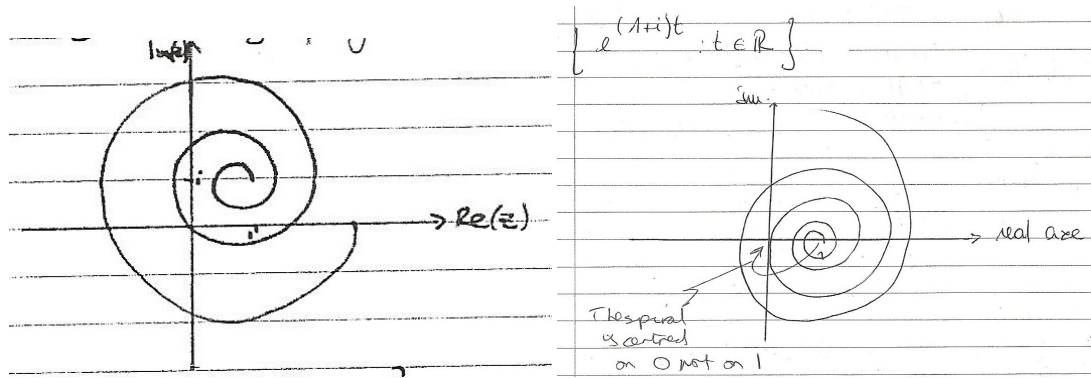 Im(z)
i
Re(z)
1
{ e^{(1+i)t} : t ∈ ℝ }
Im.
real axe
1
The spiral
is centred
on 0 not on 1